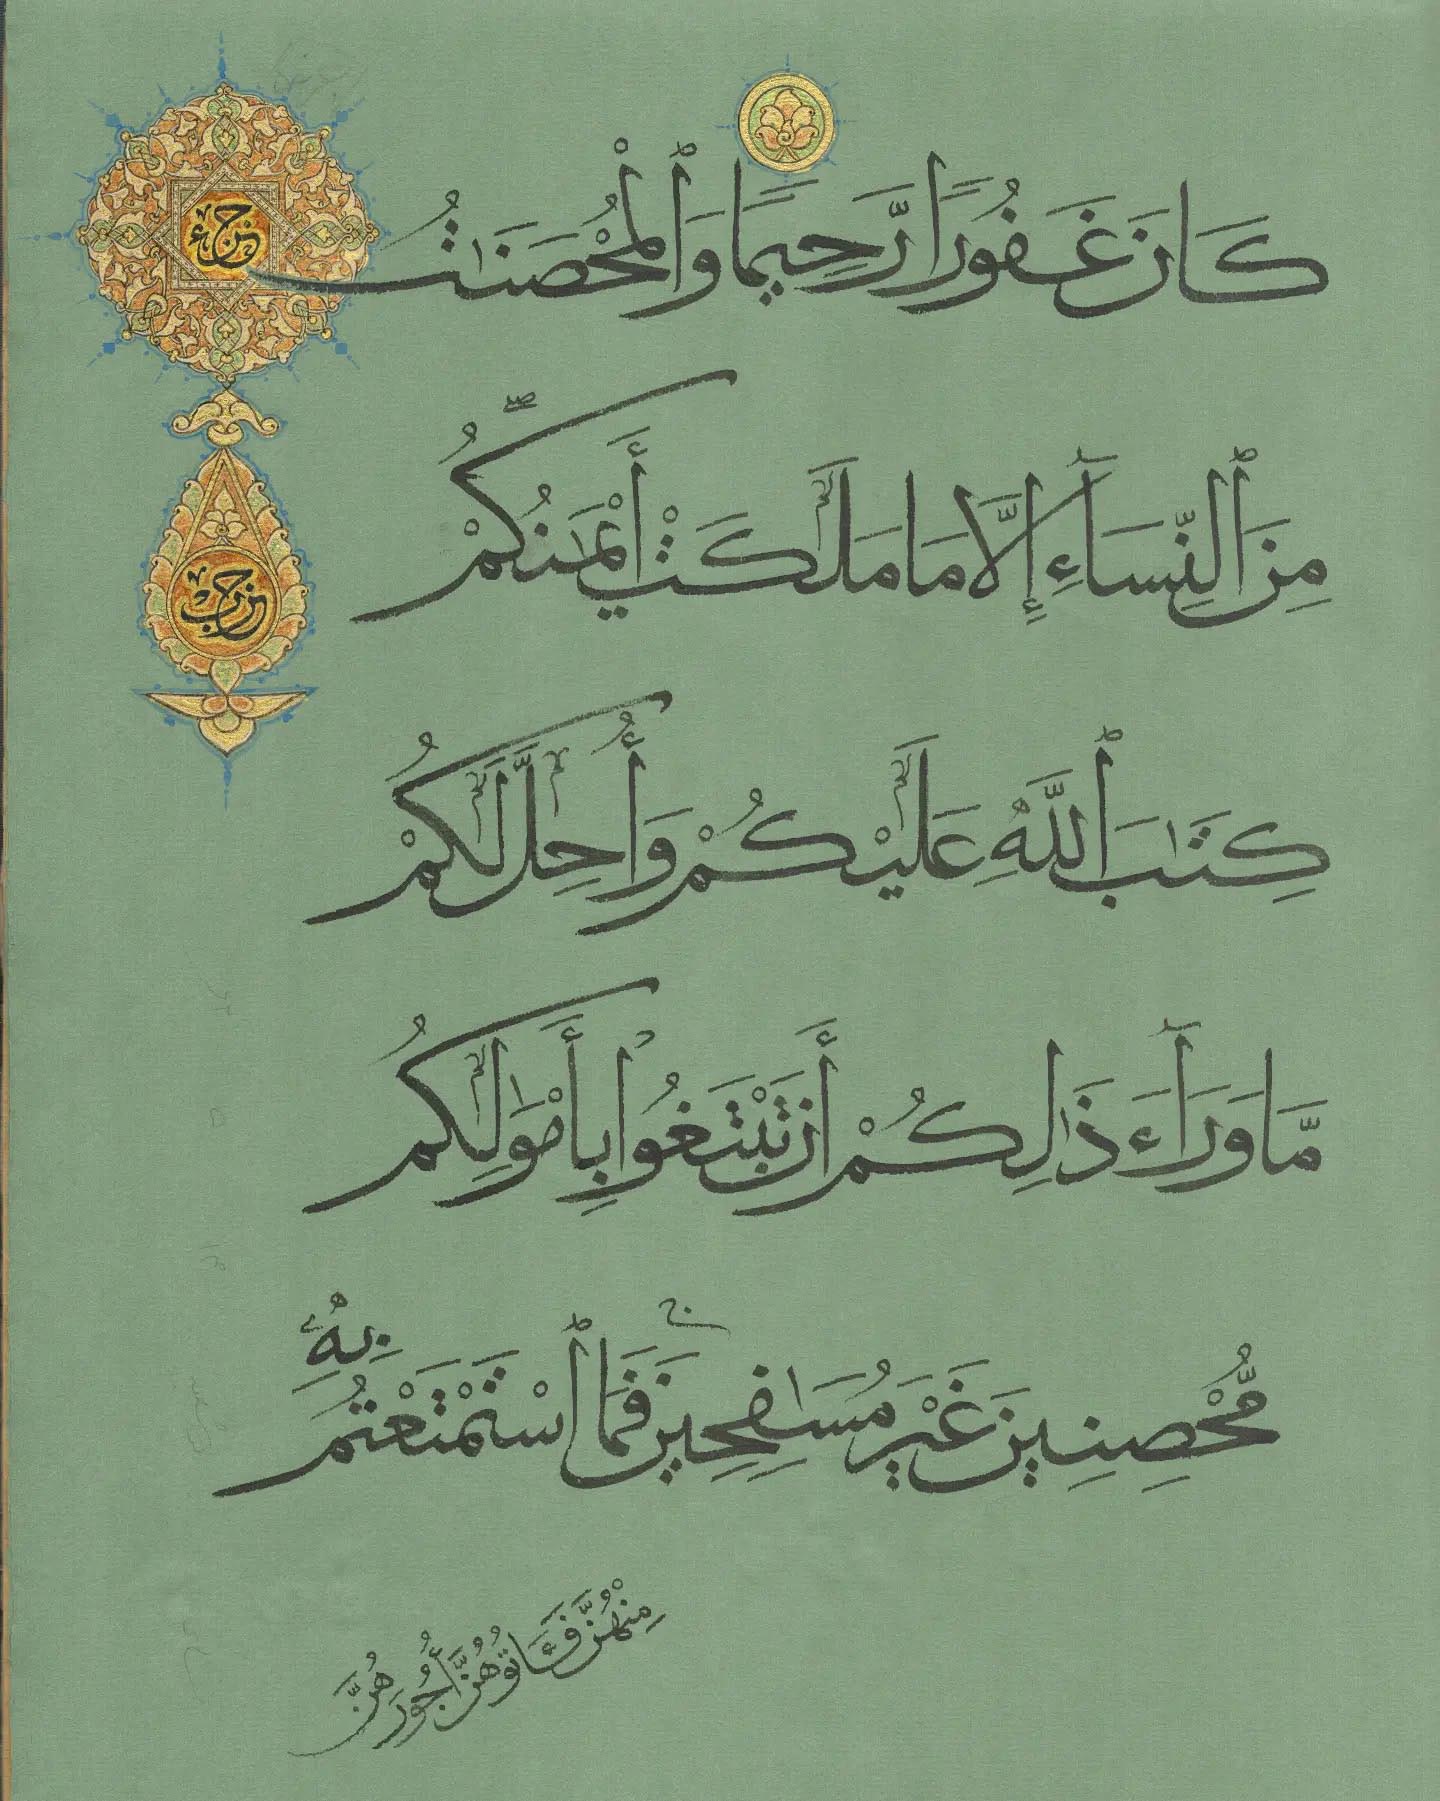 كَانَ غَفُورًا رَّحِيمًا وَٱلْمُحْصَنَٰتُ
جزء
مِنَ ٱلنِّسَآءِ إِلَّا مَا مَلَكَتْ أَيْمَٰنُكُمْ ۖ
حزب
كِتَٰبَ ٱللَّهِ عَلَيْكُمْ وَأُحِلَّ لَكُمْ
مَّا وَرَآءَ ذَٰلِكُمْ أَن تَبْتَغُوا۟ بِأَمْوَٰلِكُمْ
مُّحْصِنِينَ غَيْرَ مُسَٰفِحِينَ ۚ فَمَا ٱسْتَمْتَعْتُم بِهِۦ
مِنْهُنَّ فَـَٔاتُوهُنَّ أُجُورَهُنَّ